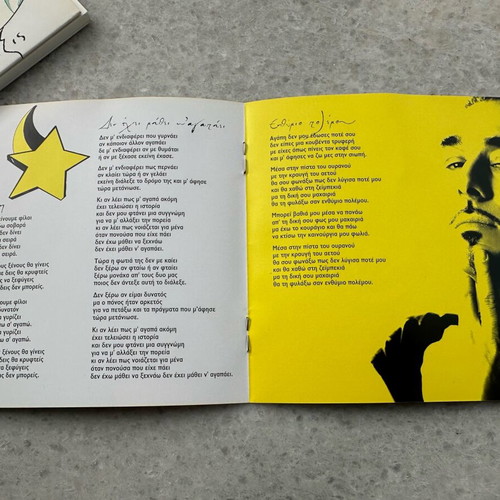 Δεν έχει μάθει ν' αγαπάει
Δεν μ' ενδιαφέρει που γυρνάει
αν κάποιον άλλον αγαπάει
δε μ' ενδιαφέρει αν με θυμάται
ή αν με ξέχασε εκείνη έχασε.
Δεν μ' ενδιαφέρει πως περνάει
αν κλαίει τώρα ή αν γελάει
εκείνη διάλεξε το δρόμο της και μ' άφησε
τώρα μετάνιωσε.
Κι αν λέει πως μ' αγαπά ακόμη
έχει τελειώσει η ιστορία
και δεν μου φτάνει μια συγγνώμη
για να μ' αλλάξει την πορεία
κι αν λέει πως νοιάζεται για μένα
και όσα έχουμε περασμένα
δεν έχω μάθει να ξεχνάω
δεν έχει μάθει ν' αγαπάει.
Τώρα η φωτιά της δεν με καίει
δεν ξέρω αν φταίω ή αν φταίει
ξέρω μονάχα απ' τους δυο μας
ποιος δεν άντεξε αυτή το διάλεξε.
Δεν ξέρω αν είμαι δυνατός
μα ο πόνος ήταν αρκετός
για να πετάξω και τα πράγματα που μ'άφησε
τώρα μετάνιωσε.
Κι αν λέει πως μ' αγαπά ακόμη
έχει τελειώσει η ιστορία
και δεν μου φτάνει μια συγγνώμη
για να μ' αλλάξει την πορεία
κι αν λέει πως νοιάζεται για μένα
όταν πονούσα που είχε πάει
δεν έχω μάθει να ξεχνάω δεν έχει μάθει ν' αγαπάει.
Ενθύμιο πολέμου
Αγάπη δεν μου έδωσες ποτέ σου
δεν είπες μια κουβέντα τρυφερή
με είχες όπως πίνεις τον καφέ σου
και μ' άφησες να ζω μες στην σιωπή.
Μέσα στην πίστα του ουρανού
με την κραυγή του αετού
θα σου φωνάξω πως δεν λύγισα ποτέ μου
και θα χαθώ στη ζεϊμπεκιά
μα τη δική σου μαχαιριά
θα τη φυλάξω σαν ενθύμιο πολέμου.
Μπορεί βαθιά μου μέσα να πονάω
απ' τη δική σου φως μου μαχαιριά
μα έχω το κουράγιο και θα πάω
να κτίσω την καινούργια μου φωλιά.
Μέσα στην πίστα του ουρανού
με την κραυγή του αετού
θα σου φωνάξω πως δεν λύγισα ποτέ μου
και θα χαθώ στη ζεϊμπεκιά
μα τη δική σου μαχαιριά
θα τη φυλάξω σαν ενθύμιο πολέμου.